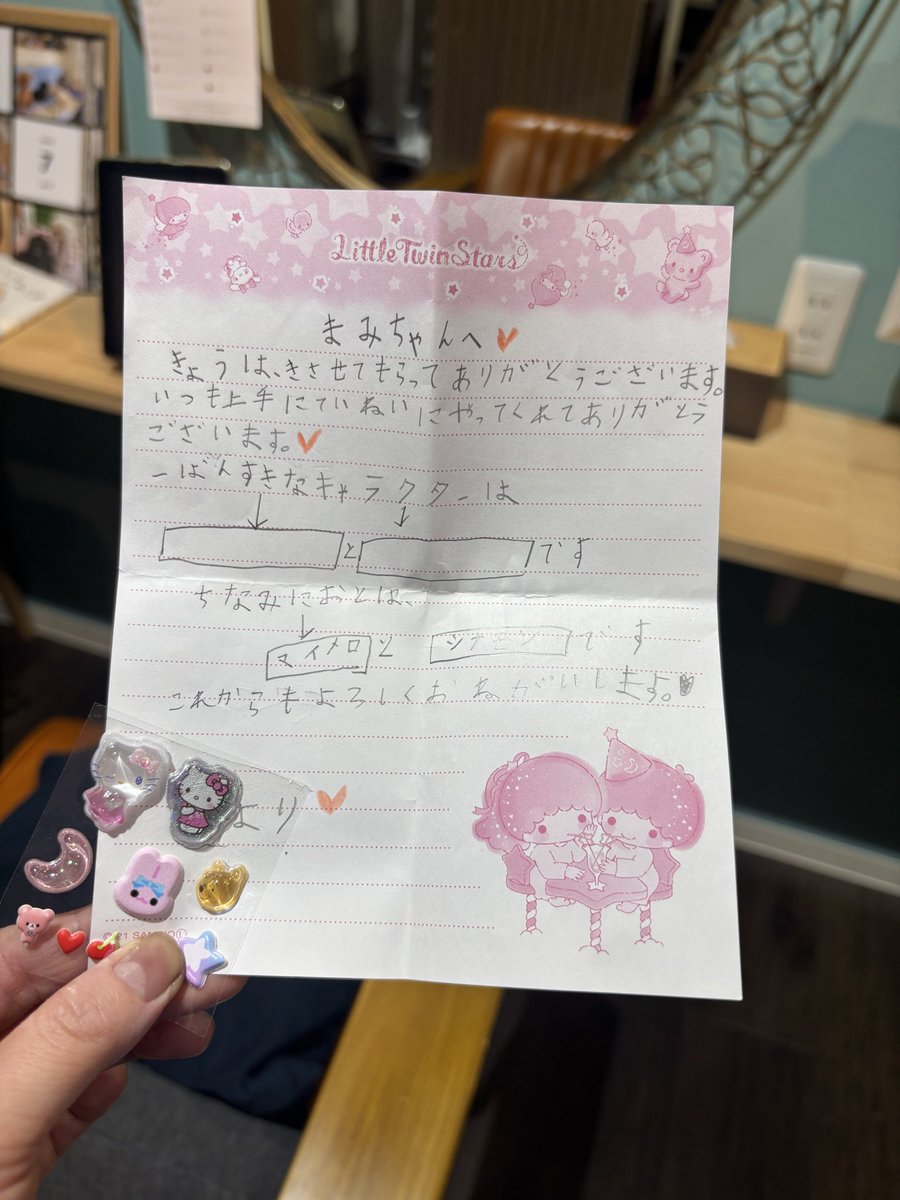 LittleTwinStars
まみちゃんへ♥
きょうは、きさせてもらってありがとうございます。
いつも上手にていねいにやってくれてありがとう
ございます。♥
一ばんすきなキャラクターは
と です
ちなみにおとは、
マイメロ と シナモン です
これからもよろしくおねがいします。♥
より♥